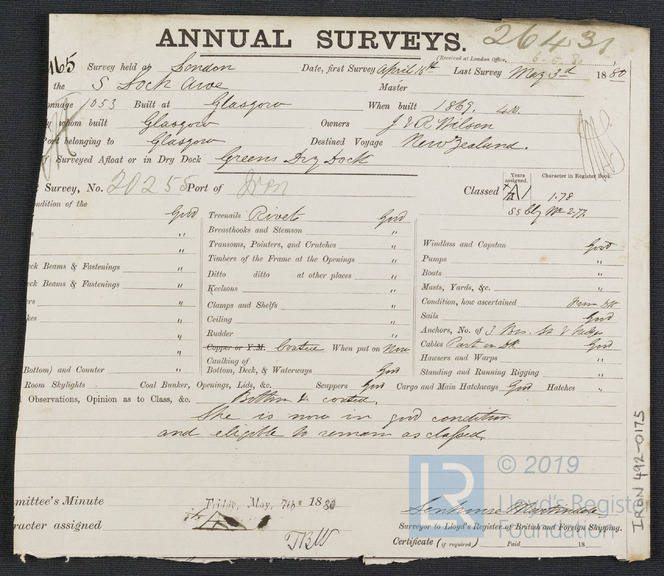 ANNUAL SURVEYS. 26431
(Received at London Office,
165 Survey held at London Date, first Survey April Last Survey May 3rd 1880
the S Loch Awe Master
onnage 1053 Built at Glasgow When built 1869.
whom built Glasgow Owners J & R Wilson
Port belonging to Glasgow Destined Voyage New Zealand.
Surveyed Afloat or in Dry Dock Greens Dry Dock
t Survey, No. 20255 Port of Iron
Years assigned. Character in Register Book.
Classed A1 1.78
ondition of the
Good Treenails Rivets Good
" Breasthooks and Stemson "
" Transoms, Pointers, and Crutches " Windlass and Capstan Good
" Timbers of the Frame at the Openings " Pumps "
eck Beams & Fastenings " Ditto ditto at other places " Boats "
eck Beams & Fastenings " Keelsons " Masts, Yards, &c. "
ers " Clamps and Shelfs " Condition, how ascertained From Dk
kes " Ceiling " Sails Good
" Rudder " Anchors, No. of 3
" Copper or Y.M. Coated When put on Now Cables Part on Dk Good
Caulking of Hawsers and Warps "
Bottom) and Counter " Bottom, Deck, & Waterways Good Standing and Running Rigging "
Room Skylights Coal Bunker, Openings, Lids, &c. Scuppers Good Cargo and Main Hatchways Good Hatches "
Observations, Opinion as to Class, &c. Bottom coated.
She is now in good condition
and eligible to remain as classed.
mmittee's Minute Friday, May, 7th 1880
racter assigned
Surveyor to Lloyd's Register of British and Foreign Shipping.
Certificate (if required) Paid 18
IRON 492-0175
LR © 2019
Lloyd's Register
Foundation